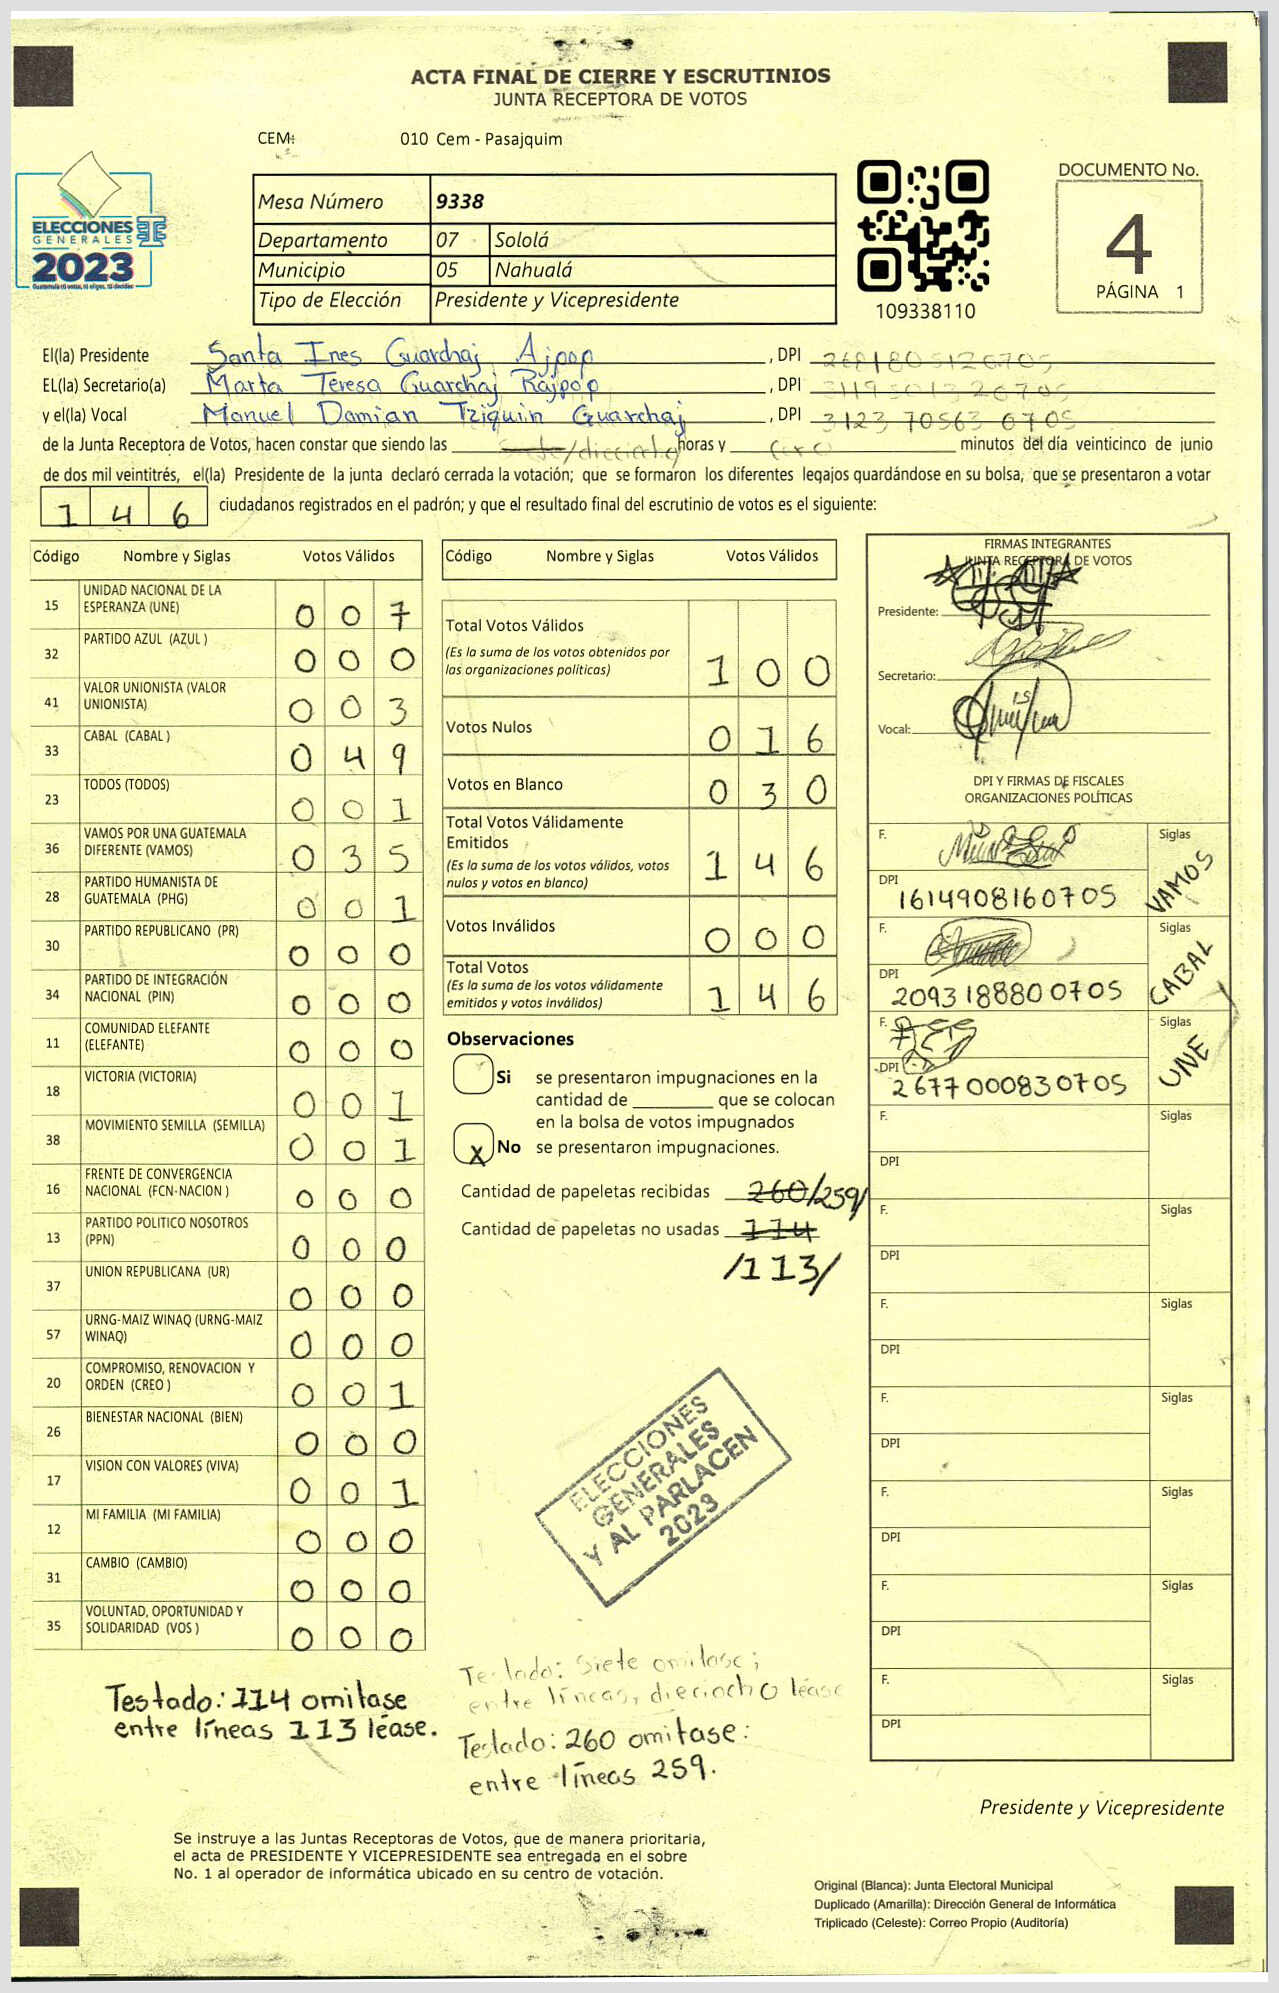 ACTA FINAL DE CIERRE Y ESCRUTINIOS
JUNTA RECEPTORA DE VOTOS
CEM: 010 Cem - Pasajquim
ELECCIONES
GENERALES
2023
Mesa Número 9338
Departamento 07 Sololá
Municipio 05 Nahualá
Tipo de Elección Presidente y Vicepresidente
109338110
DOCUMENTO No.
4
PÁGINA 1
El(la) Presidente Santa Ines Guarchaj Ajpop , DPI
EL(la) Secretario(a) Marta Teresa Guarchaj Rajpop , DPI
y el(la) Vocal Manuel Damian Tziquin Guarchaj , DPI 3123 70563 0705
de la Junta Receptora de Votos, hacen constar que siendo las siete/dieciocho horas y cero minutos del día veinticinco de junio
de dos mil veintitrés, el(la) Presidente de la junta declaró cerrada la votación; que se formaron los diferentes legajos guardándose en su bolsa, que se presentaron a votar
146 ciudadanos registrados en el padrón; y que el resultado final del escrutinio de votos es el siguiente:
Código Nombre y Siglas Votos Válidos
15 UNIDAD NACIONAL DE LA
ESPERANZA (UNE) 0 0 7
32 PARTIDO AZUL (AZUL ) 0 0 0
41 VALOR UNIONISTA (VALOR
UNIONISTA) 0 0 3
33 CABAL (CABAL ) 0 4 9
23 TODOS (TODOS) 0 0 1
36 VAMOS POR UNA GUATEMALA
DIFERENTE (VAMOS) 0 3 5
28 PARTIDO HUMANISTA DE
GUATEMALA (PHG) 0 0 1
30 PARTIDO REPUBLICANO (PR) 0 0 0
34 PARTIDO DE INTEGRACIÓN
NACIONAL (PIN) 0 0 0
11 COMUNIDAD ELEFANTE
(ELEFANTE) 0 0 0
18 VICTORIA (VICTORIA) 0 0 1
38 MOVIMIENTO SEMILLA (SEMILLA) 0 0 1
16 FRENTE DE CONVERGENCIA
NACIONAL (FCN-NACION ) 0 0 0
13 PARTIDO POLITICO NOSOTROS
(PPN) 0 0 0
37 UNION REPUBLICANA (UR) 0 0 0
57 URNG-MAIZ WINAQ (URNG-MAIZ
WINAQ) 0 0 0
20 COMPROMISO, RENOVACION Y
ORDEN (CREO ) 0 0 1
26 BIENESTAR NACIONAL (BIEN) 0 0 0
17 VISION CON VALORES (VIVA) 0 0 1
12 MI FAMILIA (MI FAMILIA) 0 0 0
31 CAMBIO (CAMBIO) 0 0 0
35 VOLUNTAD, OPORTUNIDAD Y
SOLIDARIDAD (VOS ) 0 0 0
Testado: 114 omitase
entre líneas 113 léase.
Código Nombre y Siglas Votos Válidos
Total Votos Válidos
(Es la suma de los votos obtenidos por
las organizaciones políticas) 1 0 0
Votos Nulos 0 1 6
Votos en Blanco 0 3 0
Total Votos Válidamente
Emitidos
(Es la suma de los votos válidos, votos
nulos y votos en blanco) 1 4 6
Votos Inválidos 0 0 0
Total Votos
(Es la suma de los votos válidamente
emitidos y votos inválidos) 1 4 6
Observaciones
Si se presentaron impugnaciones en la
cantidad de ________ que se colocan
en la bolsa de votos impugnados
X No se presentaron impugnaciones.
Cantidad de papeletas recibidas 260/259/
Cantidad de papeletas no usadas 114
/113/
ELECCIONES
GENERALES
Y AL PARLACEN
2023
Testado: Siete omitase;
entre líneas, dieciocho léase
Testado: 260 omitase:
entre líneas 259.
FIRMAS INTEGRANTES
JUNTA RECEPTORA DE VOTOS
Presidente:
Secretario:
Vocal:
DPI Y FIRMAS DE FISCALES
ORGANIZACIONES POLÍTICAS
F. Siglas VAMOS
DPI 1614908160705
F. Siglas CABAL
DPI 2093188800705
F. Siglas UNE
DPI 2677000830705
F. Siglas
DPI
F. Siglas
DPI
F. Siglas
DPI
F. Siglas
DPI
F. Siglas
DPI
F. Siglas
DPI
F. Siglas
DPI
Presidente y Vicepresidente
Se instruye a las Juntas Receptoras de Votos, que de manera prioritaria,
el acta de PRESIDENTE Y VICEPRESIDENTE sea entregada en el sobre
No. 1 al operador de informática ubicado en su centro de votación.
Original (Blanca): Junta Electoral Municipal
Duplicado (Amarilla): Dirección General de Informática
Triplicado (Celeste): Correo Propio (Auditoría)